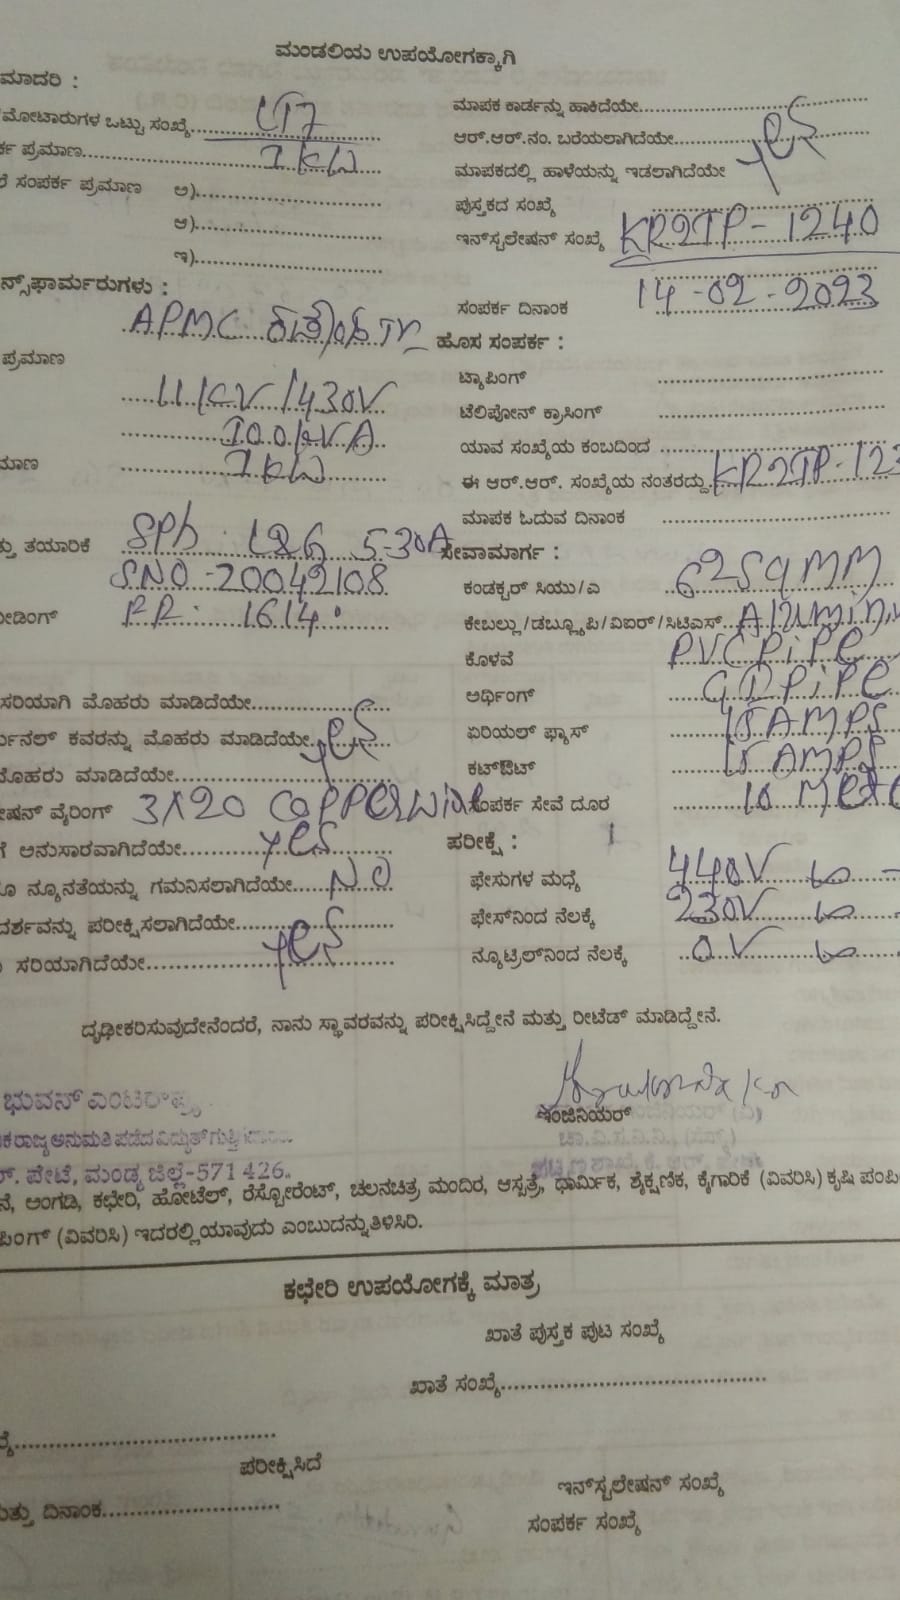 ಮಂಡಲಿಯ ಉಪಯೋಗಕ್ಕಾಗಿ
ಮಾದರಿ :
ಮೋಟಾರುಗಳ ಒಟ್ಟು ಸಂಖ್ಯೆ.......LT7
ರ್ಕ ಪ್ರಮಾಣ.......7 KW
ಲೆ ಸಂಪರ್ಕ ಪ್ರಮಾಣ ಅ).......
ಆ).......
ಇ).......
ನ್ಸ್‌ಫಾರ್ಮರುಗಳು :
APMC
ಪ್ರಮಾಣ
11KV/430V
100KVA
ಮಾಣ 7KW
ತ್ತು ತಯಾರಿಕೆ SPh L&G 5-30A
SNO-20042108
ೀಡಿಂಗ್ FR: 1614
ಸರಿಯಾಗಿ ಮೊಹರು ಮಾಡಿದೆಯೇ.......
ರ್ಮಿನಲ್ ಕವರನ್ನು ಮೊಹರು ಮಾಡಿದೆಯೇ yes
ಮೊಹರು ಮಾಡಿದೆಯೇ.......
ೇಷನ್ ವೈರಿಂಗ್ 3X20 COPPER WIRE
ಗೆ ಅನುಸಾರವಾಗಿದೆಯೇ.......yes
ೂ ನ್ಯೂನತೆಯನ್ನು ಗಮನಿಸಲಾಗಿದೆಯೇ.......NO
ದರ್ಶವನ್ನು ಪರೀಕ್ಷಿಸಲಾಗಿದೆಯೇ.......
ಸರಿಯಾಗಿದೆಯೇ.......yes
ಮಾಪಕ ಕಾರ್ಡನ್ನು ಹಾಕಿದೆಯೇ.......
ಆರ್.ಆರ್.ನಂ. ಬರೆಯಲಾಗಿದೆಯೇ.......yes
ಮಾಪಕದಲ್ಲಿ ಹಾಳೆಯನ್ನು ಇಡಲಾಗಿದೆಯೇ
ಪುಸ್ತಕದ ಸಂಖ್ಯೆ
ಇನ್‌ಸ್ಟಲೇಷನ್ ಸಂಖ್ಯೆ KR2TP-1240
ಸಂಪರ್ಕ ದಿನಾಂಕ 14-02-2023
ಹೊಸ ಸಂಪರ್ಕ :
ಟ್ಯಾಪಿಂಗ್ .......
ಟೆಲಿಪೋನ್ ಕ್ರಾಸಿಂಗ್ .......
ಯಾವ ಸಂಖ್ಯೆಯ ಕಂಬದಿಂದ .......
ಈ ಆರ್.ಆರ್. ಸಂಖ್ಯೆಯ ನಂತರದ್ದು KR2TP-123
ಮಾಪಕ ಓದುವ ದಿನಾಂಕ .......
ಸೇವಾಮಾರ್ಗ :
ಕಂಡಕ್ಟರ್ ಸಿಯು/ಎ 62SqMM
ಕೇಬಲ್ಲು/ಡಬ್ಲ್ಯೂಪಿ/ವಿಐರ್/ಸಿಟಿಎಸ್
ಕೊಳವೆ PVC PIPE
ಅರ್ಥಿಂಗ್ GI PIPE
ಏರಿಯಲ್ ಫ್ಯೂಸ್ 15 AMPS
ಕಟ್‌ಔಟ್ 15 AMPS
ಸಂಪರ್ಕ ಸೇವೆ ದೂರ 10
ಪರೀಕ್ಷೆ :
ಫೇಸುಗಳ ಮಧ್ಯೆ 440V
ಫೇಸ್‌ನಿಂದ ನೆಲಕ್ಕೆ 230V
ನ್ಯೂಟ್ರಲ್‌ನಿಂದ ನೆಲಕ್ಕೆ 0V
ದೃಢೀಕರಿಸುವುದೇನೆಂದರೆ, ನಾನು ಸ್ಥಾವರವನ್ನು ಪರೀಕ್ಷಿಸಿದ್ದೇನೆ ಮತ್ತು ರೀಟೆಡ್ ಮಾಡಿದ್ದೇನೆ.
ಭುವನ್
ರಾಜ್ಯ ಅನುಮತಿ ಪಡೆದ ವಿದ್ಯುತ್
ಇಂಜಿನಿಯರ್
ಪೇಟೆ, ಮಂಡ್ಯ ಜಿಲ್ಲೆ-571 426.
ನೆ, ಅಂಗಡಿ, ಕಛೇರಿ, ಹೋಟೆಲ್, ರೆಸ್ಟೋರೆಂಟ್, ಚಲನಚಿತ್ರ ಮಂದಿರ, ಆಸ್ಪತ್ರೆ, ಧಾರ್ಮಿಕ, ಶೈಕ್ಷಣಿಕ, ಕೈಗಾರಿಕೆ (ವಿವರಿಸಿ) ಕೃಷಿ ಪಂಪಿ
ಪಿಂಗ್ (ವಿವರಿಸಿ) ಇದರಲ್ಲಿ ಯಾವುದು ಎಂಬುದನ್ನು ತಿಳಿಸಿರಿ.
ಕಛೇರಿ ಉಪಯೋಗಕ್ಕೆ ಮಾತ್ರ
ಖಾತೆ ಪುಸ್ತಕ ಪುಟ ಸಂಖ್ಯೆ
ಖಾತೆ ಸಂಖ್ಯೆ.......
ಪರೀಕ್ಷಿಸಿದೆ
ಇನ್‌ಸ್ಟಲೇಷನ್ ಸಂಖ್ಯೆ
ಮತ್ತು ದಿನಾಂಕ.......
ಸಂಪರ್ಕ ಸಂಖ್ಯೆ